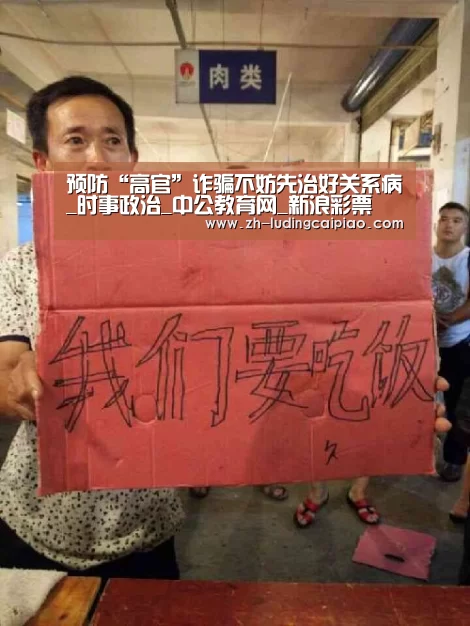 肉类
预防“高官”诈骗不妨先治好关系病
_时事政治_中公教育网_新浪彩票
www.zh-ludingcaipiao.com
我们要吃饭